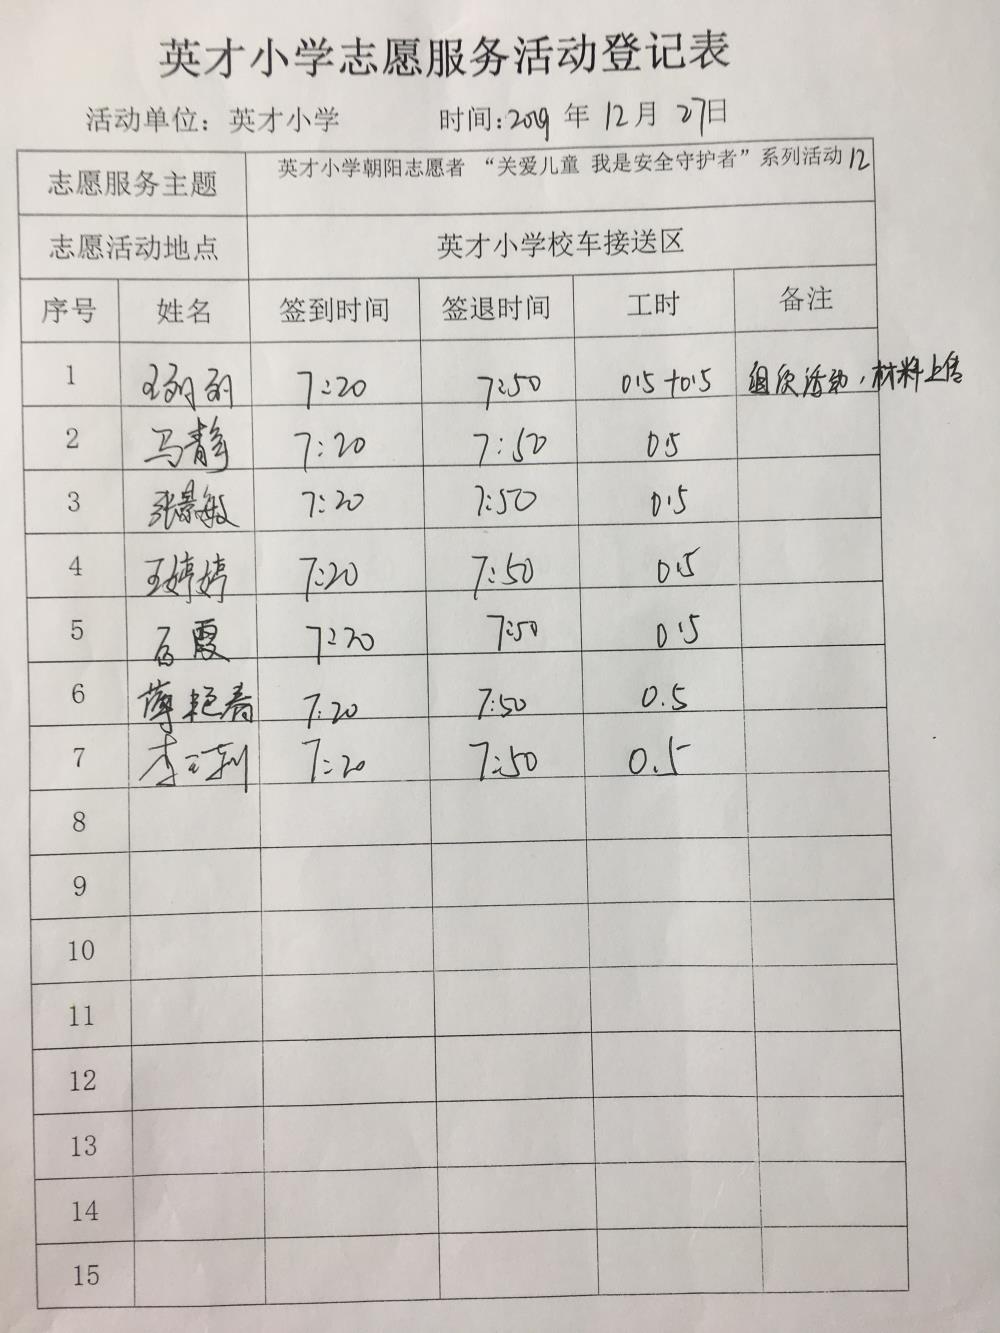 英才小学志愿服务活动登记表
活动单位：英才小学 时间:2019 年 12 月 27日
志愿服务主题 英才小学朝阳志愿者 “关爱儿童 我是安全守护者”系列活动 12
志愿活动地点 英才小学校车接送区
序号 姓名 签到时间 签退时间 工时 备注
1 7:20 7:50 0.5+0.5 组织活动,材料上传
2 马静 7:20 7:50 0.5
3 张景敏 7:20 7:50 0.5
4 王婷婷 7:20 7:50 0.5
5 霞 7:20 7:50 0.5
6 薄艳春 7:20 7:50 0.5
7 李 7:20 7:50 0.5
8
9
10
11
12
13
14
15